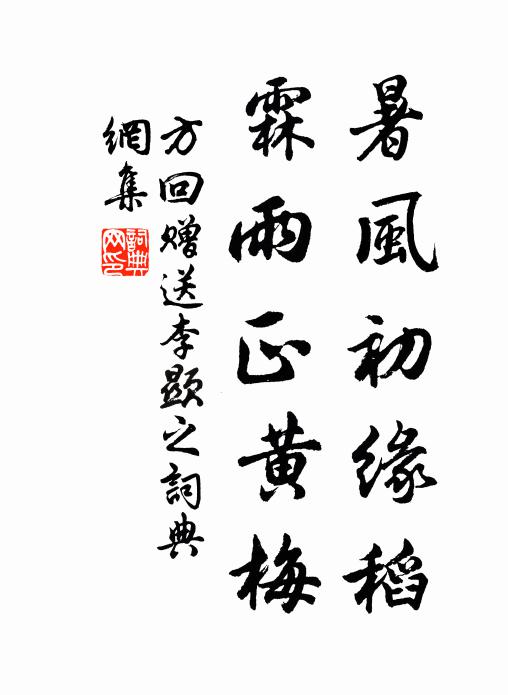 暑風初緣稻
霖雨正黃梅
方回贈送李顯之詞典
網集
詞典
网印